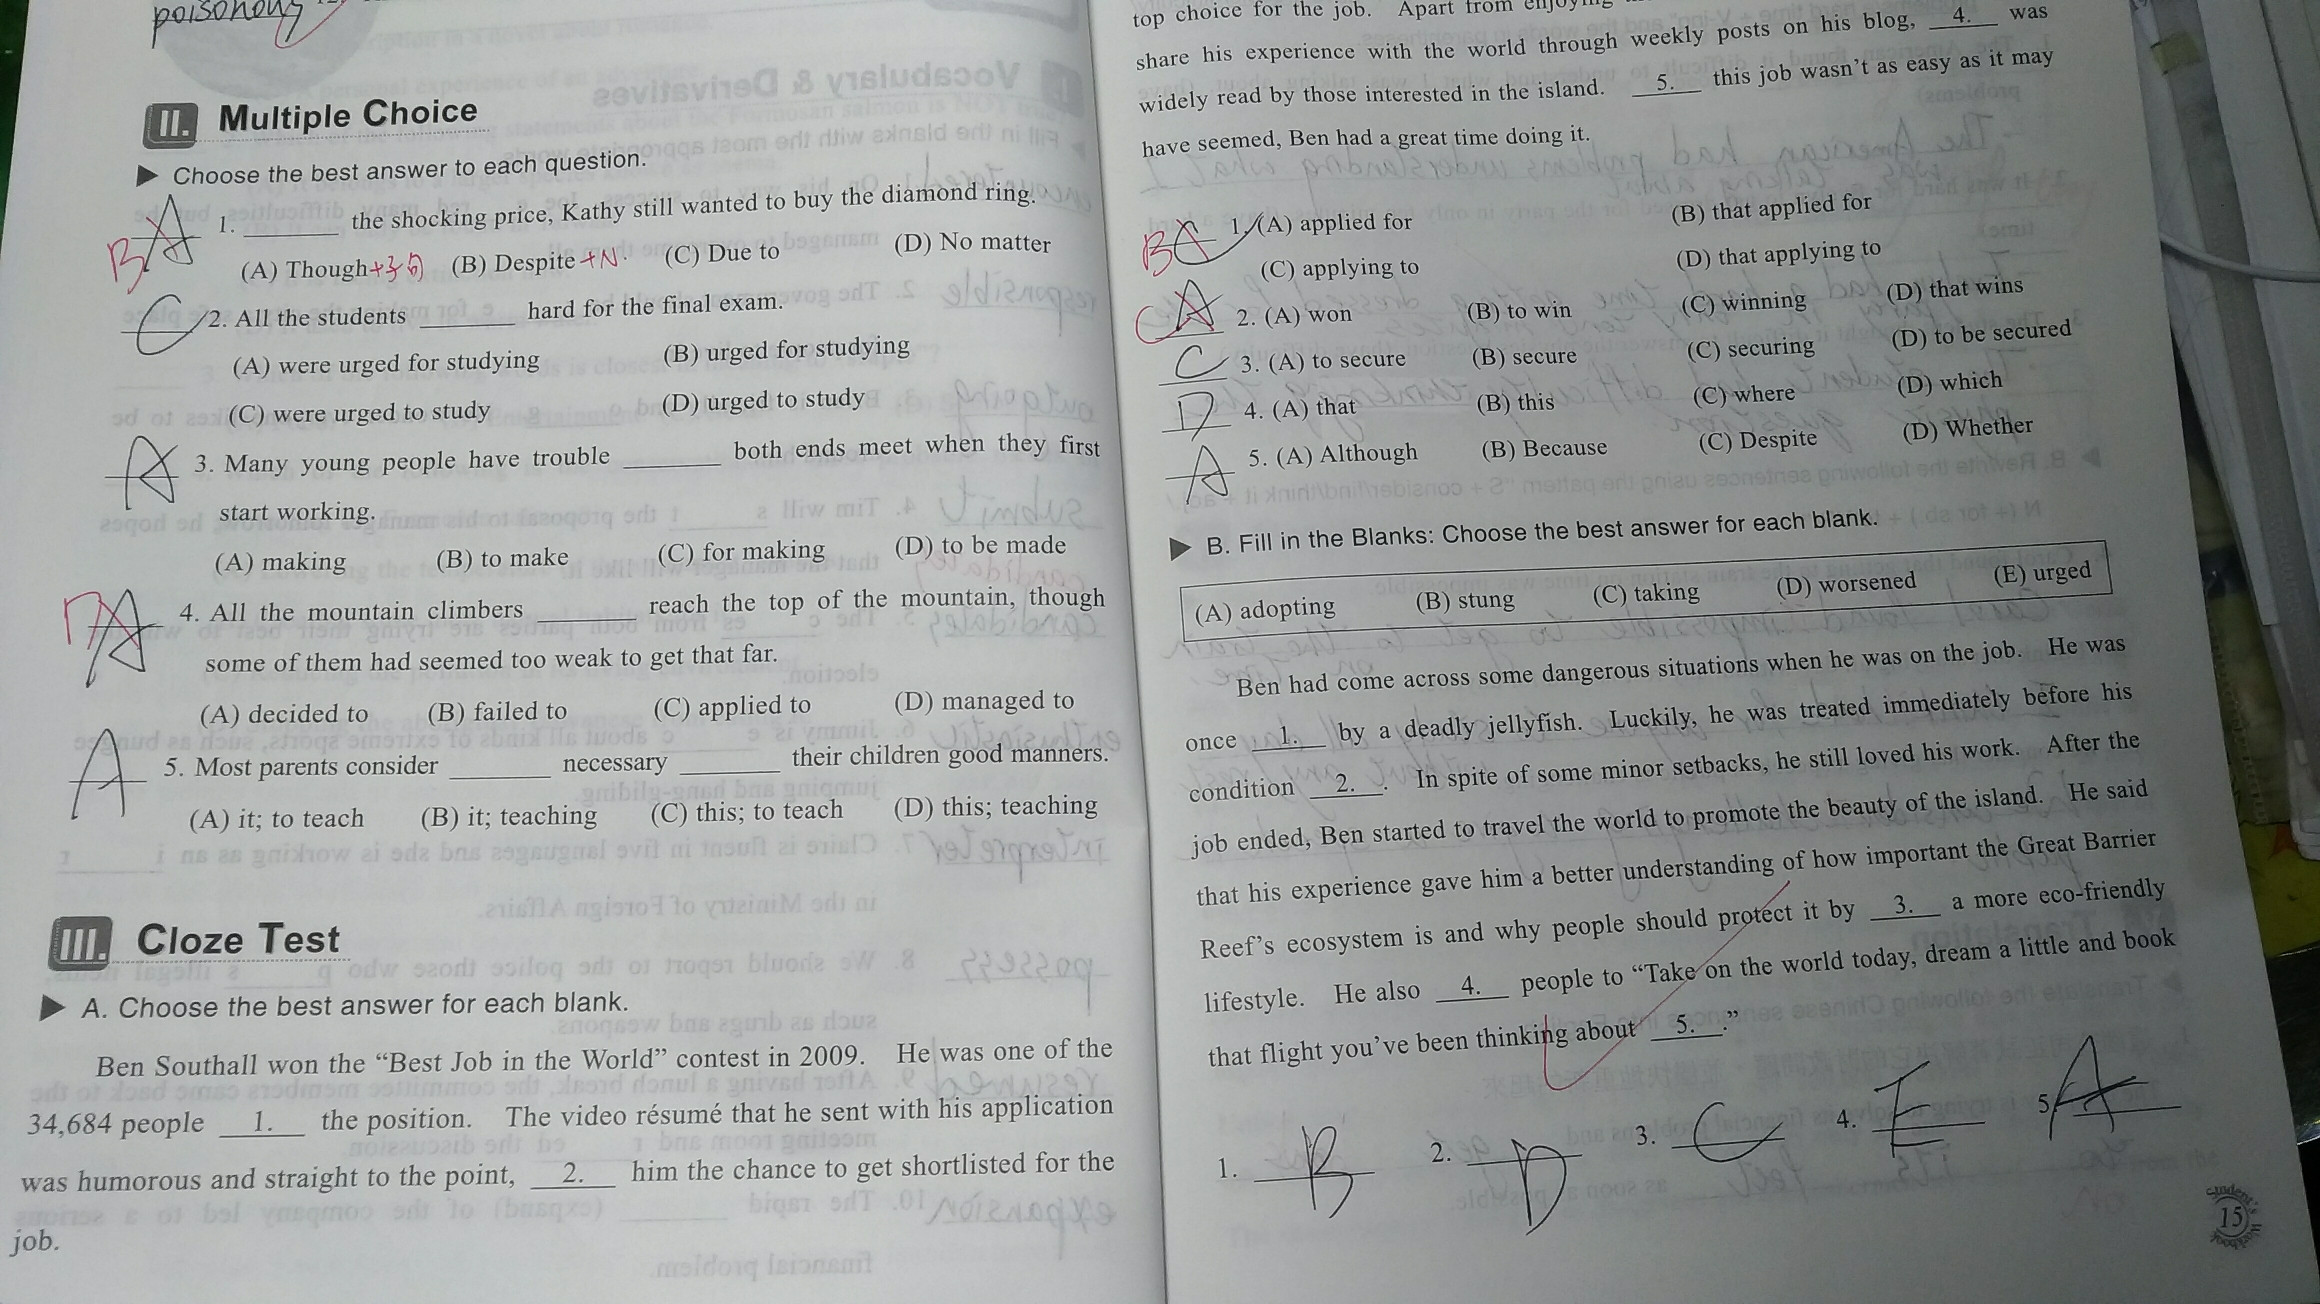 poisonous
II. Multiple Choice
▶ Choose the best answer to each question.
B A 1. ________ the shocking price, Kathy still wanted to buy the diamond ring.
(A) Though+子句 (B) Despite +N. (C) Due to (D) No matter
C 2. All the students ________ hard for the final exam.
(A) were urged for studying (B) urged for studying
(C) were urged to study (D) urged to study
A 3. Many young people have trouble ________ both ends meet when they first
start working.
(A) making (B) to make (C) for making (D) to be made
D A 4. All the mountain climbers ________ reach the top of the mountain, though
some of them had seemed too weak to get that far.
(A) decided to (B) failed to (C) applied to (D) managed to
A 5. Most parents consider ________ necessary ________ their children good manners.
(A) it; to teach (B) it; teaching (C) this; to teach (D) this; teaching
III. Cloze Test
▶ A. Choose the best answer for each blank.
Ben Southall won the “Best Job in the World” contest in 2009. He was one of the
34,684 people 1. the position. The video résumé that he sent with his application
was humorous and straight to the point, 2. him the chance to get shortlisted for the
job.
top choice for the job. Apart from enjoying
share his experience with the world through weekly posts on his blog, 4. was
widely read by those interested in the island. 5. this job wasn’t as easy as it may
have seemed, Ben had a great time doing it.
B 1. (A) applied for (B) that applied for
(C) applying to (D) that applying to
C A 2. (A) won (B) to win (C) winning (D) that wins
C 3. (A) to secure (B) secure (C) securing (D) to be secured
D 4. (A) that (B) this (C) where (D) which
A 5. (A) Although (B) Because (C) Despite (D) Whether
▶ B. Fill in the Blanks: Choose the best answer for each blank.
(A) adopting (B) stung (C) taking (D) worsened (E) urged
Ben had come across some dangerous situations when he was on the job. He was
once 1. by a deadly jellyfish. Luckily, he was treated immediately before his
condition 2. . In spite of some minor setbacks, he still loved his work. After the
job ended, Ben started to travel the world to promote the beauty of the island. He said
that his experience gave him a better understanding of how important the Great Barrier
Reef’s ecosystem is and why people should protect it by 3. a more eco-friendly
lifestyle. He also 4. people to “Take on the world today, dream a little and book
that flight you’ve been thinking about 5. .”
1. B 2. D 3. C 4. E 5. A
Student's Workbook
15